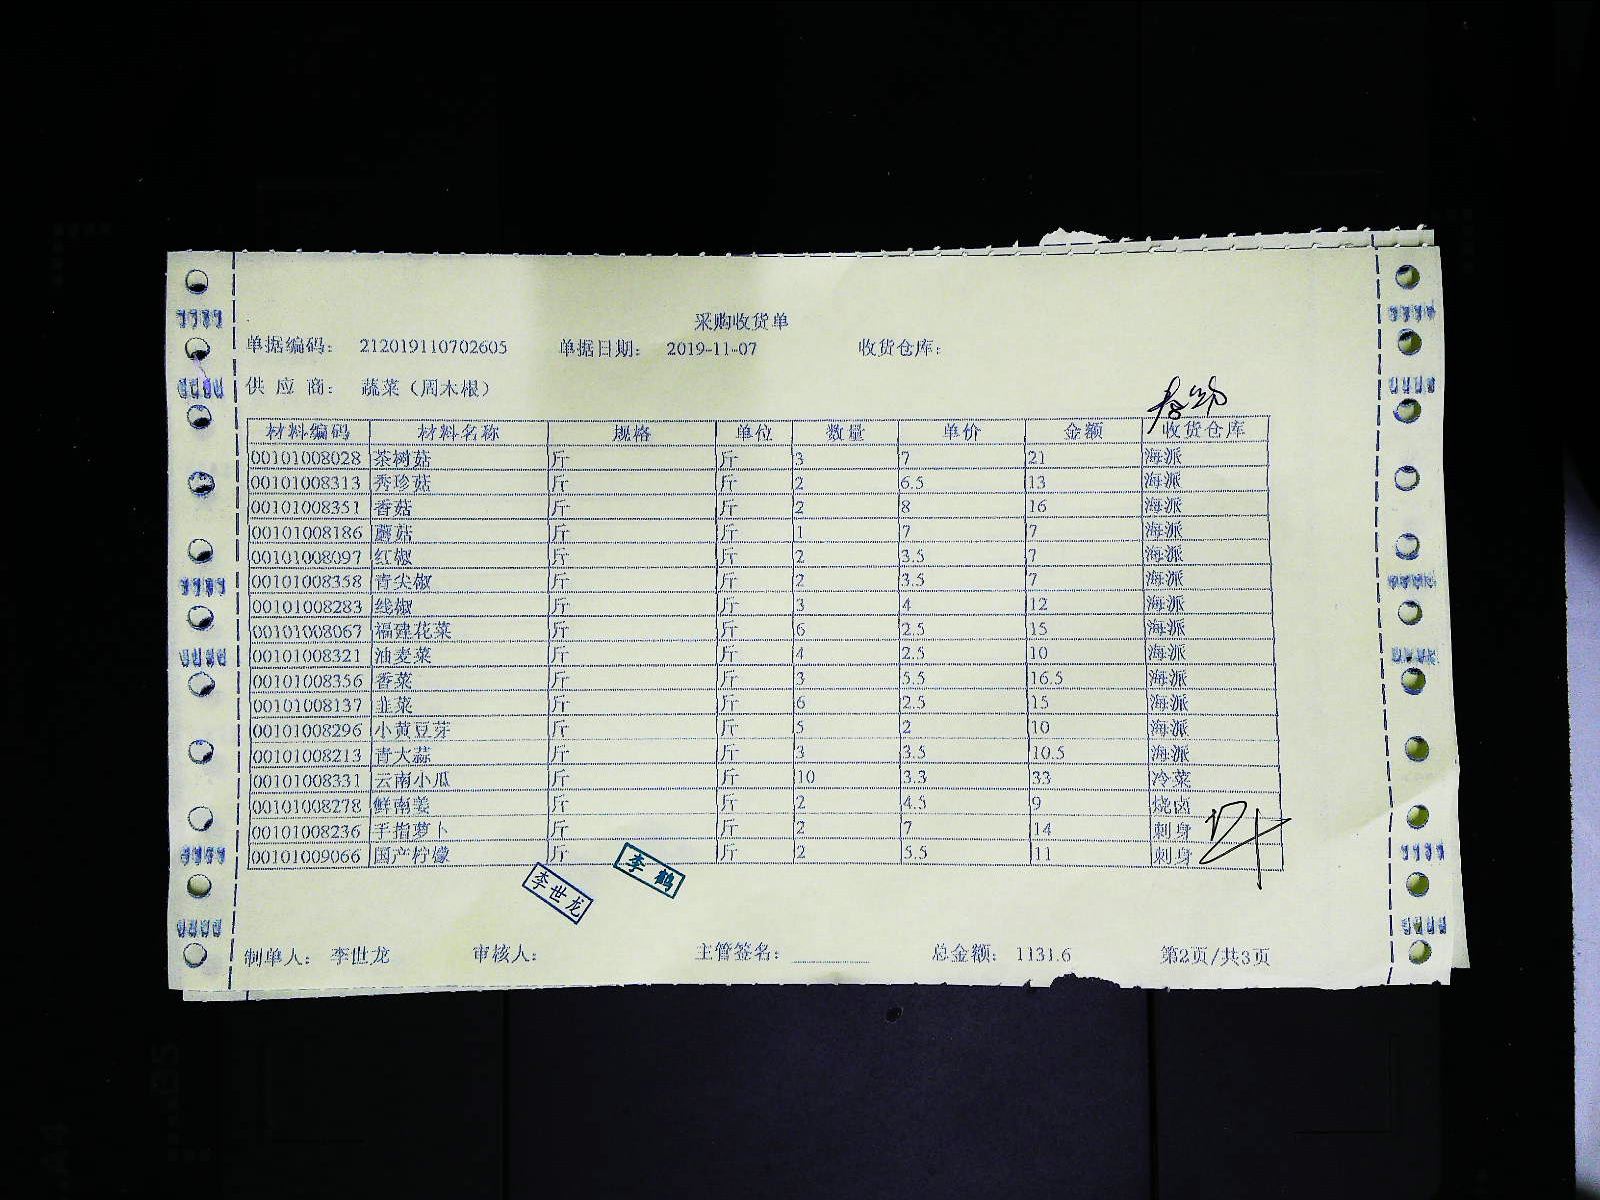 采购收货单
单据编码： 212019110702605 单据日期： 2019-11-07 收货仓库：
供 应 商： 蔬菜（周木根）
材料编码 材料名称 规格 单位 数量 单价 金额 收货仓库
00101008028 茶树菇 斤 斤 3 7 21 海派
00101008313 秀珍菇 斤 斤 2 6.5 13 海派
00101008351 香菇 斤 斤 2 8 16 海派
00101008186 蘑菇 斤 斤 1 7 7 海派
00101008097 红椒 斤 斤 2 3.5 7 海派
00101008358 青尖椒 斤 斤 2 3.5 7 海派
00101008283 线椒 斤 斤 3 4 12 海派
00101008067 福建花菜 斤 斤 6 2.5 15 海派
00101008321 油麦菜 斤 斤 4 2.5 10 海派
00101008356 香菜 斤 斤 3 5.5 16.5 海派
00101008137 韭菜 斤 斤 6 2.5 15 海派
00101008296 小黄豆芽 斤 斤 5 2 10 海派
00101008213 青大蒜 斤 斤 3 3.5 10.5 海派
00101008331 云南小瓜 斤 斤 10 3.3 33 冷菜
00101008278 鲜南姜 斤 斤 2 4.5 9 烧卤
00101008236 手指萝卜 斤 斤 2 7 14 刺身
00101009066 国产柠檬 斤 斤 2 5.5 11 刺身
李世龙 李鹤
制单人： 李世龙 审核人： 主管签名： 总金额： 1131.6 第2页/共3页